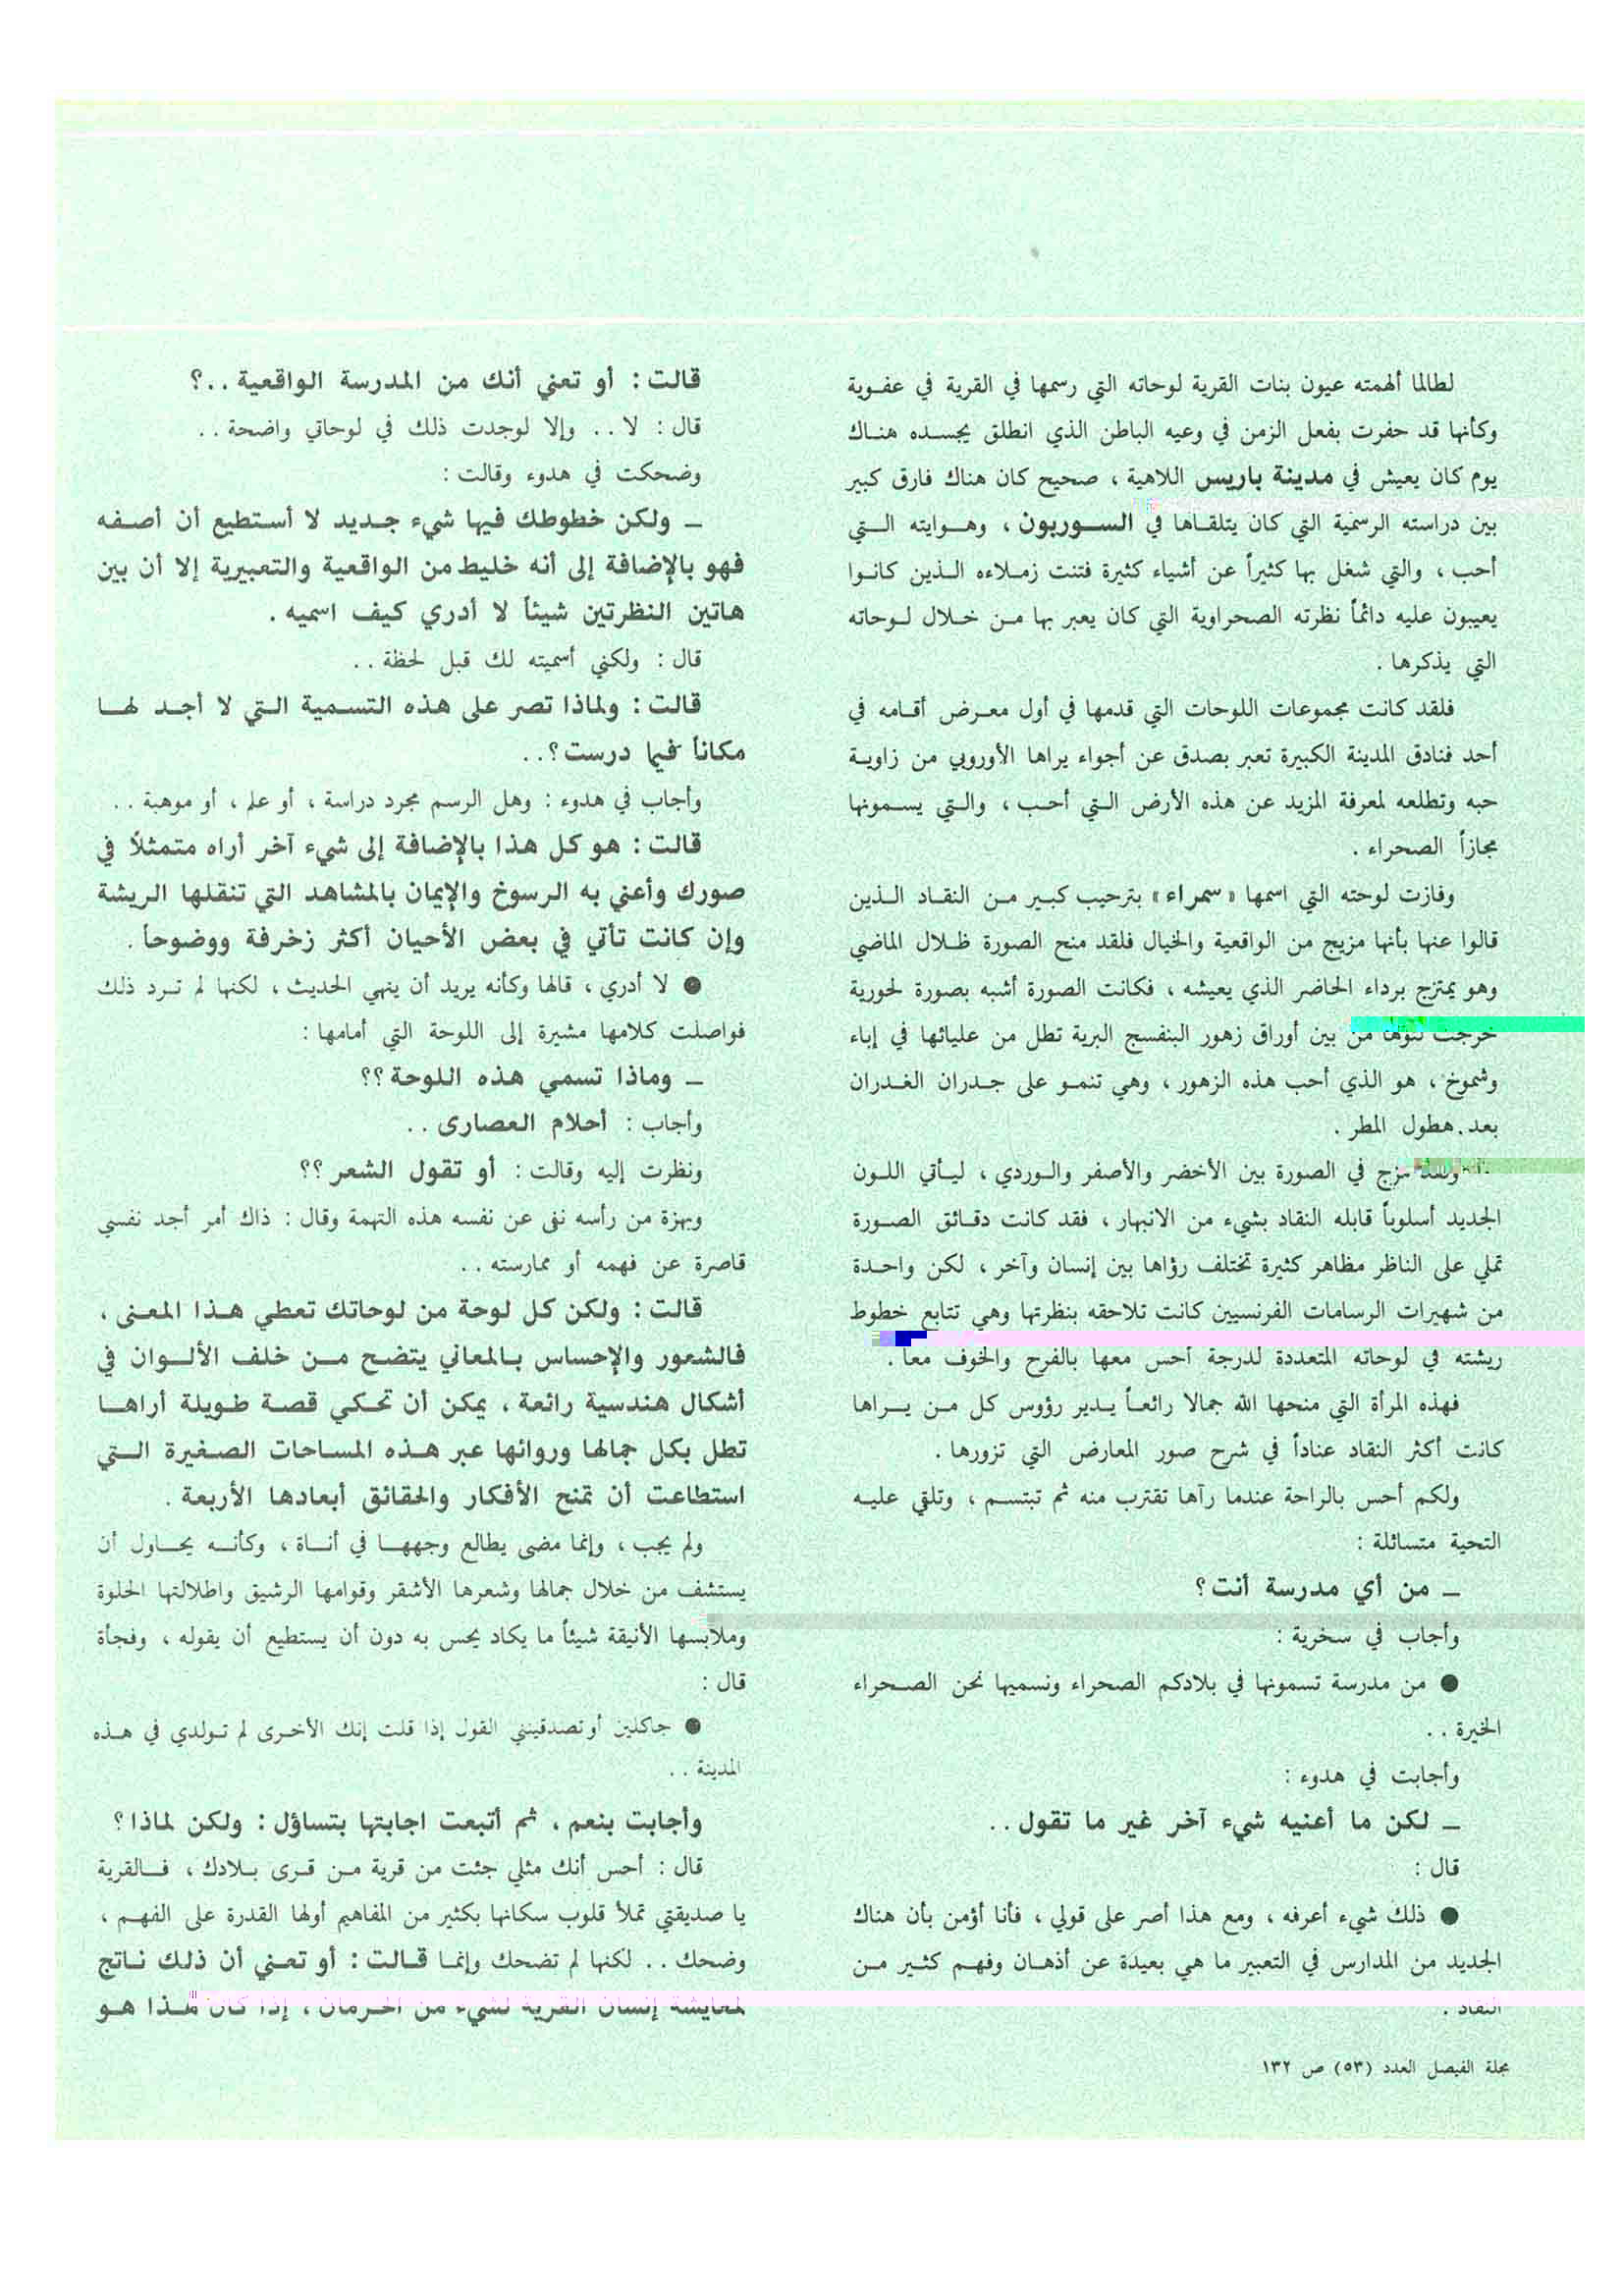 لطالما ألهمته عيون بنات القرية لوحاته التي رسمها في القرية في عفوية
وكأنها قد حفرت بفعل الزمن في وعيه الباطن الذي انطلق يجسده هناك
يوم كان يعيش في مدينة باريس اللاهية ، صحيح كان هناك فارق كبير
بين دراسته الرسمية التي كان يتلقاها في السوربون ، وهوايته التي
أحب ، والتي شغل بها كثيراً عن أشياء كثيرة فتنت زملاءه الذين كانوا
يعيبون عليه دائماً نظرته الصحراوية التي كان يعبر بها من خلال لوحاته
التي يذكرها .
فلقد كانت مجموعات اللوحات التي قدمها في أول معرض أقامه في
أحد فنادق المدينة الكبيرة تعبر بصدق عن أجواء يراها الأوروبي من زاوية
حبه وتطلعه لمعرفة المزيد عن هذه الأرض التي أحب ، والتي يسمونها
مجازاً الصحراء .
وفازت لوحته التي اسمها « سمراء » بترحيب كبير من النقاد الذين
قالوا عنها بأنها مزيج من الواقعية والخيال فلقد منح الصورة ظلال الماضي
وهو يمتزج برداء الحاضر الذي يعيشه ، فكانت الصورة أشبه بصورة لحورية
خرجت لتوها من بين أوراق زهور البنفسج البرية تطل من عليائها في إباء
وشموخ ، هو الذي أحب هذه الزهور ، وهي تنمو على جدران الغدران
بعد هطول المطر .
ولقد مزج في الصورة بين الأخضر والأصفر والوردي ، ليأتي اللون
الجديد أسلوباً قابله النقاد بشيء من الانبهار ، فقد كانت دقائق الصورة
تملي على الناظر مظاهر كثيرة تختلف رؤاها بين إنسان وآخر ، لكن واحدة
من شهيرات الرسامات الفرنسيين كانت تلاحقه بنظرتها وهي تتابع خطوط
ريشته في لوحاته المتعددة لدرجة أحس معها بالفرح والخوف معاً .
فهذه المرأة التي منحها الله جمالا رائعاً يدير رؤوس كل من يراها
كانت أكثر النقاد عناداً في شرح صور المعارض التي تزورها .
ولكم أحس بالراحة عندما رآها تقترب منه ثم تبتسم ، وتلقي عليه
التحية متسائلة :
ــ من أي مدرسة أنت ؟
وأجاب في سخرية :
● من مدرسة تسمونها في بلادكم الصحراء ونسميها نحن الصحراء
الخيرة . .
وأجابت في هدوء :
ــ لكن ما أعنيه شيء آخر غير ما تقول . .
قال :
● ذلك شيء أعرفه ، ومع هذا أصر على قولي ، فأنا أؤمن بأن هناك
الجديد من المدارس في التعبير ما هي بعيدة عن أذهان وفهم كثير من
النقاد .
قالت : أو تعني أنك من المدرسة الواقعية . . ؟
قال : لا . . وإلا لوجدت ذلك في لوحاتي واضحة . .
وضحكت في هدوء وقالت :
ــ ولكن خطوطك فيها شيء جديد لا أستطيع أن أصفه
فهو بالإضافة إلى أنه خليط من الواقعية والتعبيرية إلا أن بين
هاتين النظرتين شيئاً لا أدري كيف اسميه .
قال : ولكني أسميته لك قبل لحظة . .
قالت : ولماذا تصر على هذه التسمية التي لا أجد لها
مكاناً فيما درست ؟ . .
وأجاب في هدوء : وهل الرسم مجرد دراسة ، أو علم ، أو موهبة . .
قالت : هو كل هذا بالإضافة إلى شيء آخر أراه متمثلاً في
صورك وأعني به الرسوخ والإيمان بالمشاهد التي تنقلها الريشة
وإن كانت تأتي في بعض الأحيان أكثر زخرفة ووضوحاً .
● لا أدري ، قالها وكأنه يريد أن ينهي الحديث ، لكنها لم ترد ذلك
فواصلت كلامها مشيرة إلى اللوحة التي أمامها :
ــ وماذا تسمي هذه اللوحة ؟؟
وأجاب : أحلام العصارى . .
ونظرت إليه وقالت : أو تقول الشعر ؟؟
وبهزة من رأسه نفى عن نفسه هذه التهمة وقال : ذاك أمر أجد نفسي
قاصرة عن فهمه أو ممارسته . .
قالت : ولكن كل لوحة من لوحاتك تعطي هذا المعنى ،
فالشعور والإحساس بالمعاني يتضح من خلف الألوان في
أشكال هندسية رائعة ، يمكن أن تحكي قصة طويلة أراها
تطل بكل جمالها وروائها عبر هذه المساحات الصغيرة التي
استطاعت أن تمنح الأفكار والحقائق أبعادها الأربعة .
ولم يجب ، وإنما مضى يطالع وجهها في أناة ، وكأنه يحاول أن
يستشف من خلال جمالها وشعرها الأشقر وقوامها الرشيق واطلالتها الحلوة
وملابسها الأنيقة شيئاً ما يكاد يحس به دون أن يستطيع أن يقوله ، وفجأة
قال :
● جاكلين أو تصدقينني القول إذا قلت إنك الأخرى لم تولدي في هذه
المدينة . .
وأجابت بنعم ، ثم أتبعت اجابتها بتساؤل : ولكن لماذا ؟
قال : أحس أنك مثلي جئت من قرية من قرى بلادك ، فالقرية
يا صديقتي تملأ قلوب سكانها بكثير من المفاهيم أولها القدرة على الفهم ،
وضحك . . لكنها لم تضحك وإنما قالت : أو تعني أن ذلك ناتج
لمعايشة إنسان القرية لشيء من الحرمان ، إذا كان هذا هو
مجلة الفيصل العدد (٥٣) ص ١٣٢